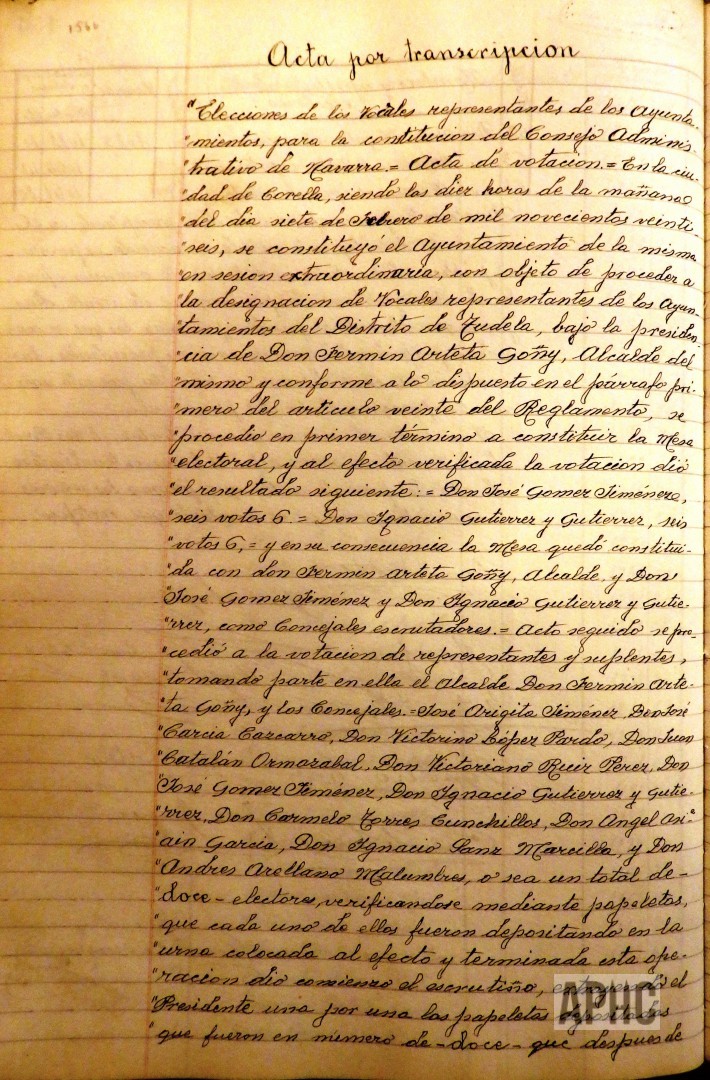 1566
Acta por transcripcion
"Elecciones de los Vocales representantes de los Ayunta-
"mientos, para la constitucion del Consejo Adminis
"trativo de Navarra.= Acta de votacion.= En la ciu-
"dad de Corella, siendo las diez horas de la mañana
"del dia siete de Febrero de mil novecientos veinti
"seis, se constituyó el Ayuntamiento de la misma
"en sesion extraordinaria, con objeto de proceder a
"la designacion de Vocales representantes de los Ayun-
"tamientos del Distrito de Tudela, bajo la presiden-
"cia de Don Fermin Arteta Goñy, Alcalde del
"mismo y conforme a lo dispuesto en el párrafo pri-
"mero del articulo veinte del Reglamento, se
"procedio en primer término a constituir la Mesa
"electoral, y al efecto verificada la votacion dió
"el resultado siguiente:= Don José Gomez Jiménez,
"seis votos 6.= Don Ignacio Gutierrez y Gutierrez, seis
"votos 6,= y en su consecuencia la Mesa quedó constitui-
"da con don Fermin Arteta Goñy, Alcalde, y Don
"José Gomez Jiménez y Don Ignacio Gutierrez y Gutie-
"rrez, como Concejales escrutadores.= Acto seguido se pro-
"cedió a la votacion de representantes y suplentes,
"tomando parte en ella el Alcalde Don Fermin Arte-
"ta Goñy, y los Concejales.= José Arigita Jiménez, Don José
"Garcia Cazcarro, Don Victorino López Pardo, Don Juan
"Catalán Ormazabal, Don Victoriano Ruiz Perez, Don
"José Gomez Jiménez, Don Ignacio Gutierrez y Gutie-
"rrez, Don Carmelo Torres Cunchillos, Don Angel Ar-
"ain Garcia, Don Ignacio Sanz Marcilla, y Don
"Andres Arellano Malumbres, o sea un total de-
"doce- electores, verificandose mediante papeletas,
"que cada uno de ellos fueron depositando en la
"urna colocada al efecto y terminada esta ope-
"racion dio comienzo el escrutiño, el
"Presidente una por una las papeletas depositadas
"que fueron en número de - doce - que despues de
APHC